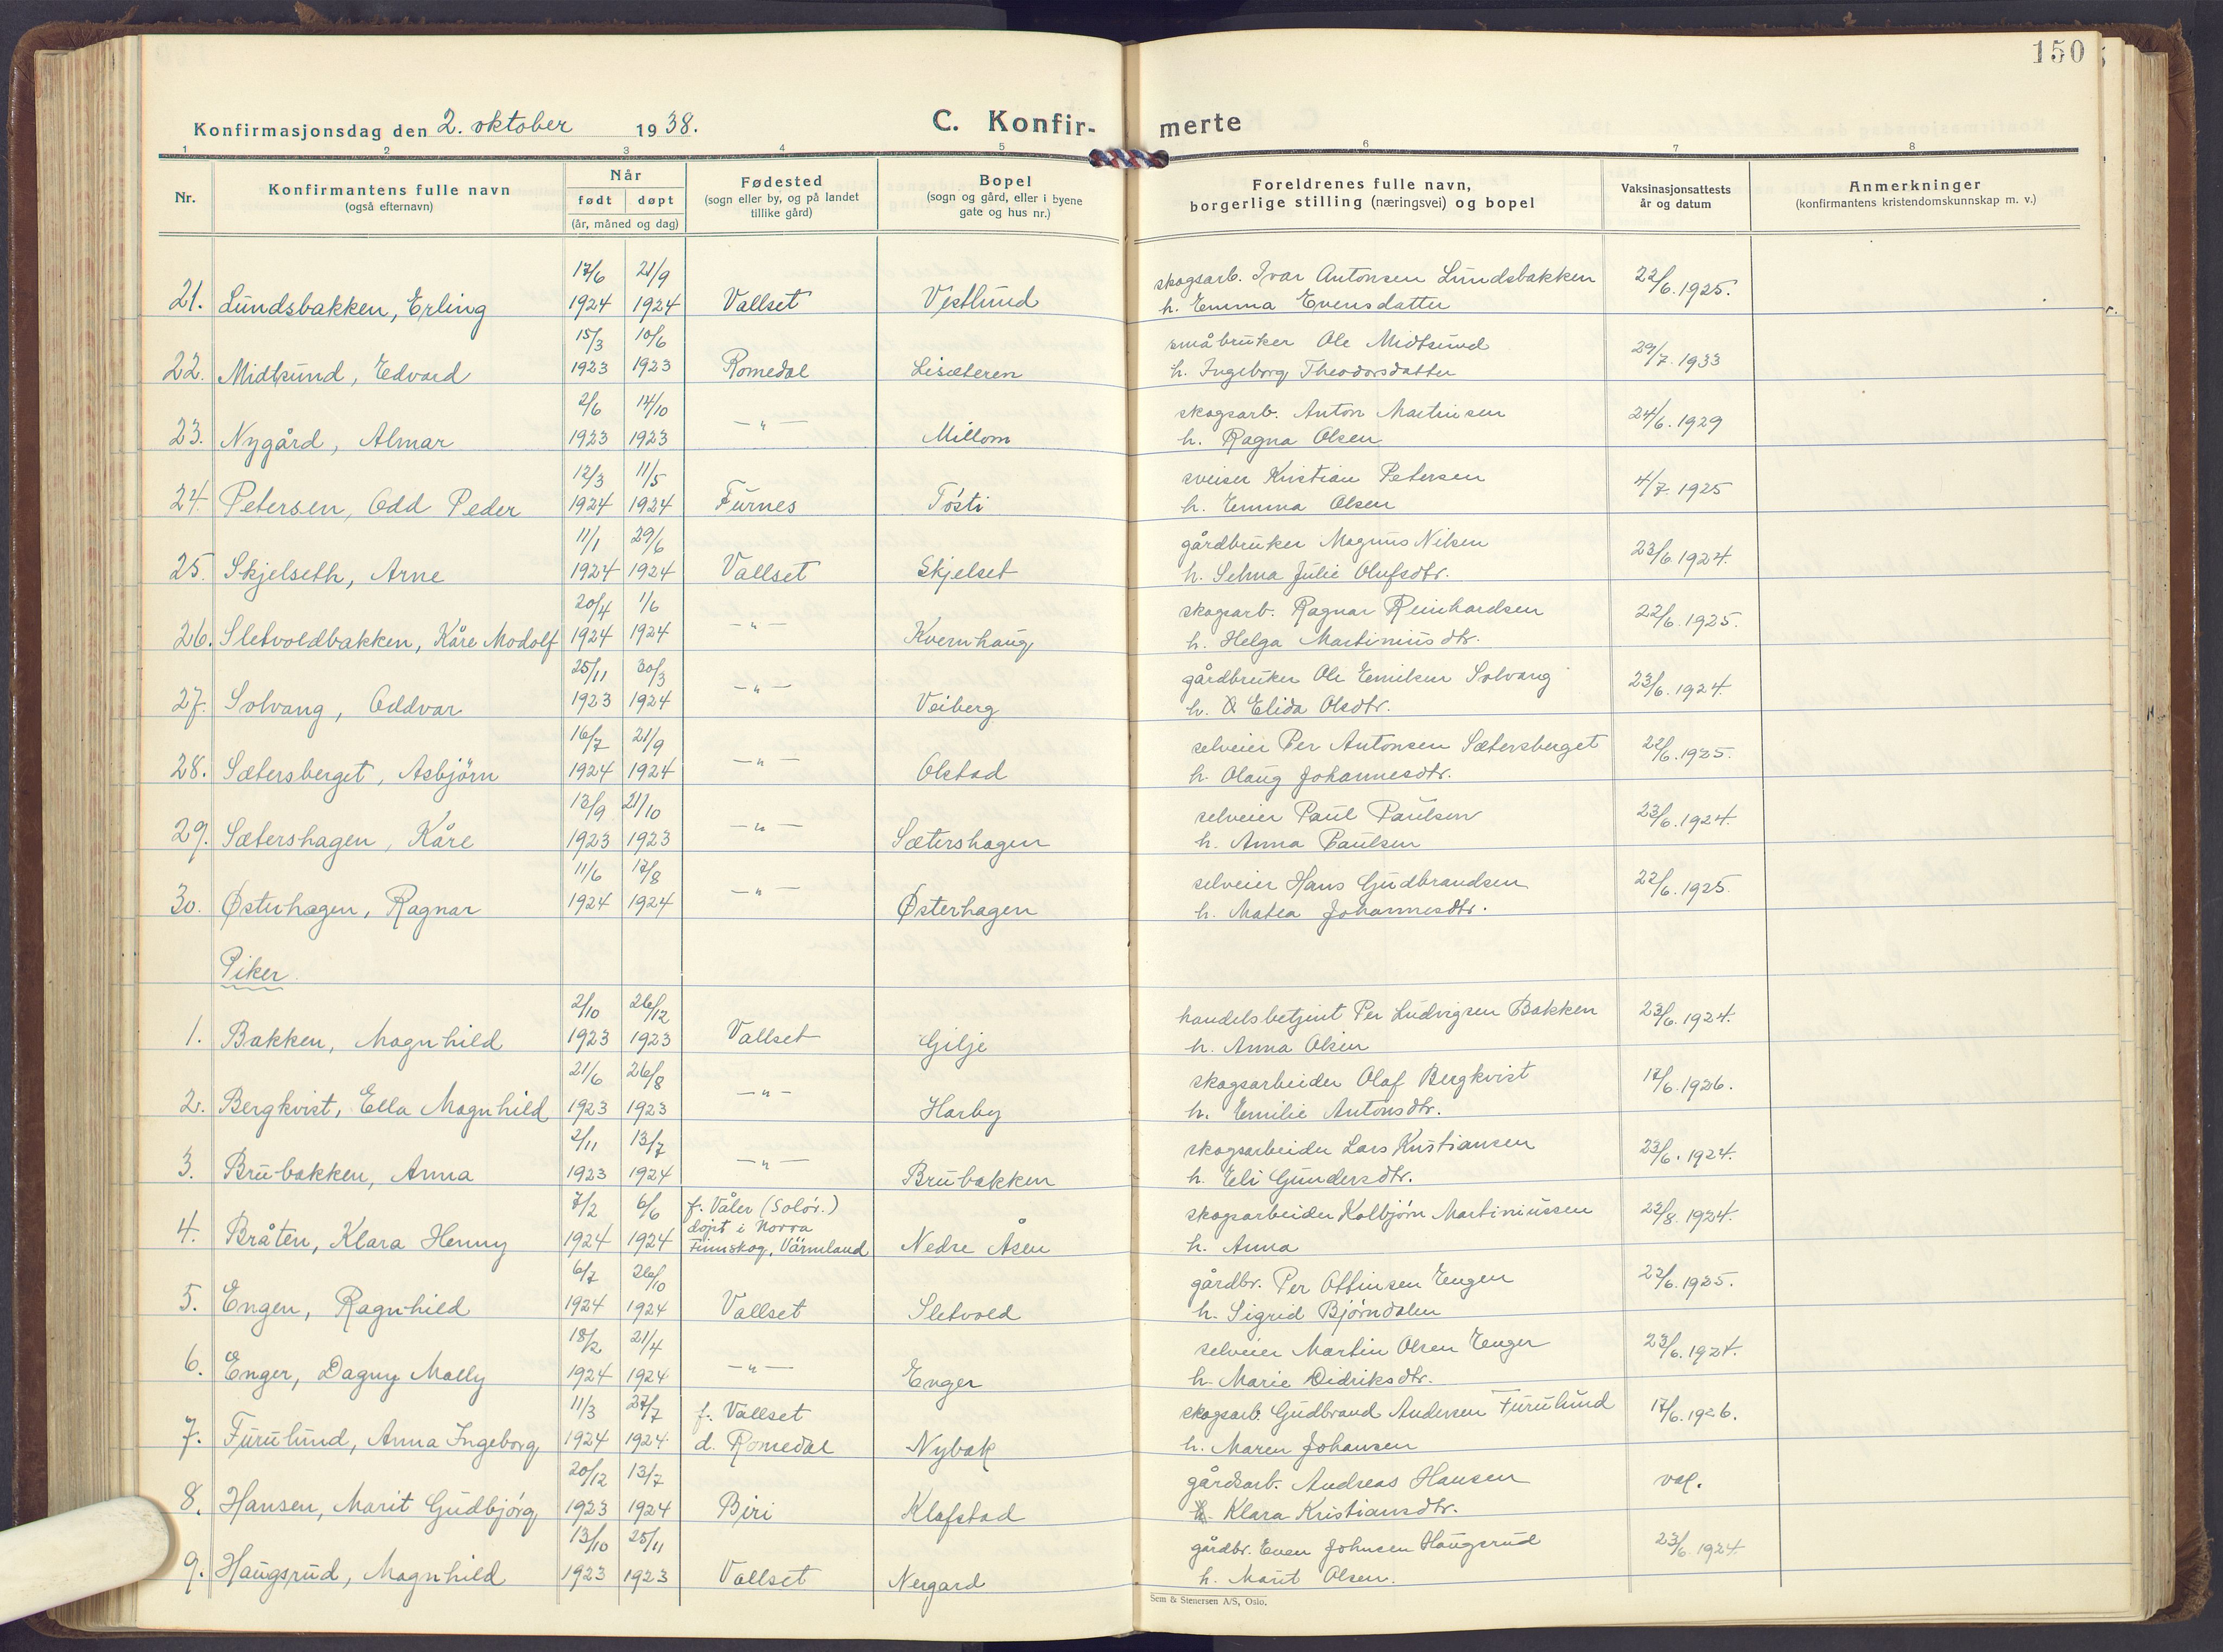 150
Konfirmasjonsdag den 2. oktober 1938.
C. Konfir-
merte
1 2 3 4 5 6 7 8
Nr.
Konfirmantens fulle navn
(også efternavn)
Når
født døpt
(år, måned og dag)
Fødested
(sogn eller by, og på landet
tillike gård)
Bopel
(sogn og gård, eller i byene
gate og hus nr.)
Foreldrenes fulle navn,
borgerlige stilling (næringsvei) og bopel
Vaksinasjonsattests
år og datum
Anmerkninger
(konfirmantens kristendomskunnskap m. v.)
17/6 21/9 skogsarb. Ivar Antonsen Lundsbakken 22/6.1925.
21. Lundsbakken, Erling 1924 1924 Vallset Vestlund h. Emma Evensdatter
15/3 10/6 småbruker Ole Midtsund 29/7.1933
22. Midtsund, Edvard 1923 1923 Romedal Lisæteren h. Ingeborg Theodorsdatter
2/6 14/10 skogsarb. Anton Martinsen 24/6.1929
23. Nygård, Almar 1923 1923 —"— Millom h. Ragna Olsen
12/3 11/5 sveiser Kristian Petersen 4/7.1925
24. Petersen, Odd Peder 1924 1924 Furnes Tøsti h. Emma Olsen
11/1 29/6 gårdbruker Magnus Nilsen 23/6.1924.
25. Skjelseth, Arne 1924 1924 Vallset Skjelset h. Selma Julie Olufsdtr.
20/4 1/6 skogsarb. Ragnar Reinhardsen 22/6.1925.
26. Sletvoldbakken, Kåre Modolf 1924 1924 —"— Kvernhaug h. Helga Martiniusdtr.
25/11 30/3 gårdbruker Ole Emilsen Solvang 23/6.1924.
27. Solvang, Oddvar 1923 1924 —"— Veiberg h. Elida Olsdtr.
16/7 21/9 selveier Per Antonsen Sætersberget 22/6.1925.
28. Sætersberget, Asbjörn 1924 1924 —"— Olstad h. Olaug Johannesdtr.
13/9 21/10 selveier Paul Paulsen 23/6.1924.
29. Sætershagen, Kåre 1923 1923 —"— Sætershagen h. Anna Paulsen
11/6 17/8 selveier Hans Gudbrandsen 22/6.1925.
30. Østerhagen, Ragnar 1924 1924 —"— Østerhagen h. Matea Johannesdtr.
Piker.
2/10 26/12 handelsbetjent Per Ludvigsen Bakken 23/6.1924.
1. Bakken, Magnhild 1923 1923 Vallset Gilje h. Anna Olsen
21/6 26/8 skogsarbeider Olaf Bergkvist 17/6.1926.
2. Bergkvist, Ella Magnhild 1923 1923 —"— Harby h. Emilie Antonsdtr.
2/11 13/7 skogsarbeider Lars Kristiansen 23/6.1924.
3. Brubakken, Anna 1923 1924 —"— Brubakken h. Eli Gundersdtr.
7/2 6/6 f. Våler (Solør.) skogsarbeider Kolbjørn Martiniussen 22/8.1924.
døpt i Norra
4. Bråten, Klara Henny 1924 1924 Finnskog, Värmland Nedre Åsen h. Anna
6/7 26/10 gårdbr. Per Ottinsen Engen 22/6.1925.
5. Engen, Ragnhild 1924 1924 Vallset Sletvold h. Sigrid Bjørndalen
18/2 21/4 selveier Martin Olsen Enger 23/6.1924.
6. Enger, Dagny Molly 1924 1924 —"— Enger h. Marie Didriksdtr.
11/3 27/7 f. Vallset skogsarb. Gudbrand Andersen Furulund 17/6.1926.
7. Furulund, Anna Ingeborg 1924 1924 d. Romedal Nybak h. Maren Johansen
20/12 13/7 gårdsarb. Andreas Hansen vak.
8. Hansen, Marit Gudbjørg 1923 1924 Biri Klafstad h. Klara Kristiansdtr.
13/10 25/11 gårdbr. Even Johnsen Haugsrud 23/6.1924.
9. Haugsrud, Magnhild 1923 1923 Vallset Nergard h. Marit Olsen.
Sem & Stenersen A/S, Oslo.